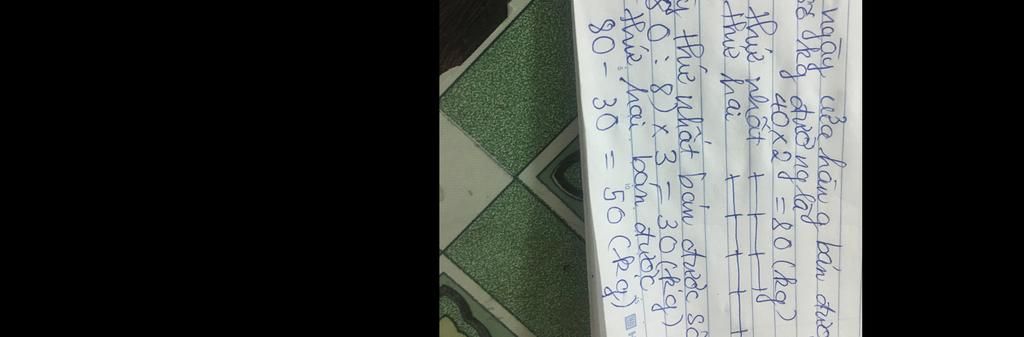 ngày cửa hàng bán được
8kg đường là
40 x 2 = 80 (kg)
thứ nhất
thứ hai
thứ nhất bán được số
0 : 8) x 3 = 30 (kg)
thứ hai bán được
80 - 30 = 50 (kg)